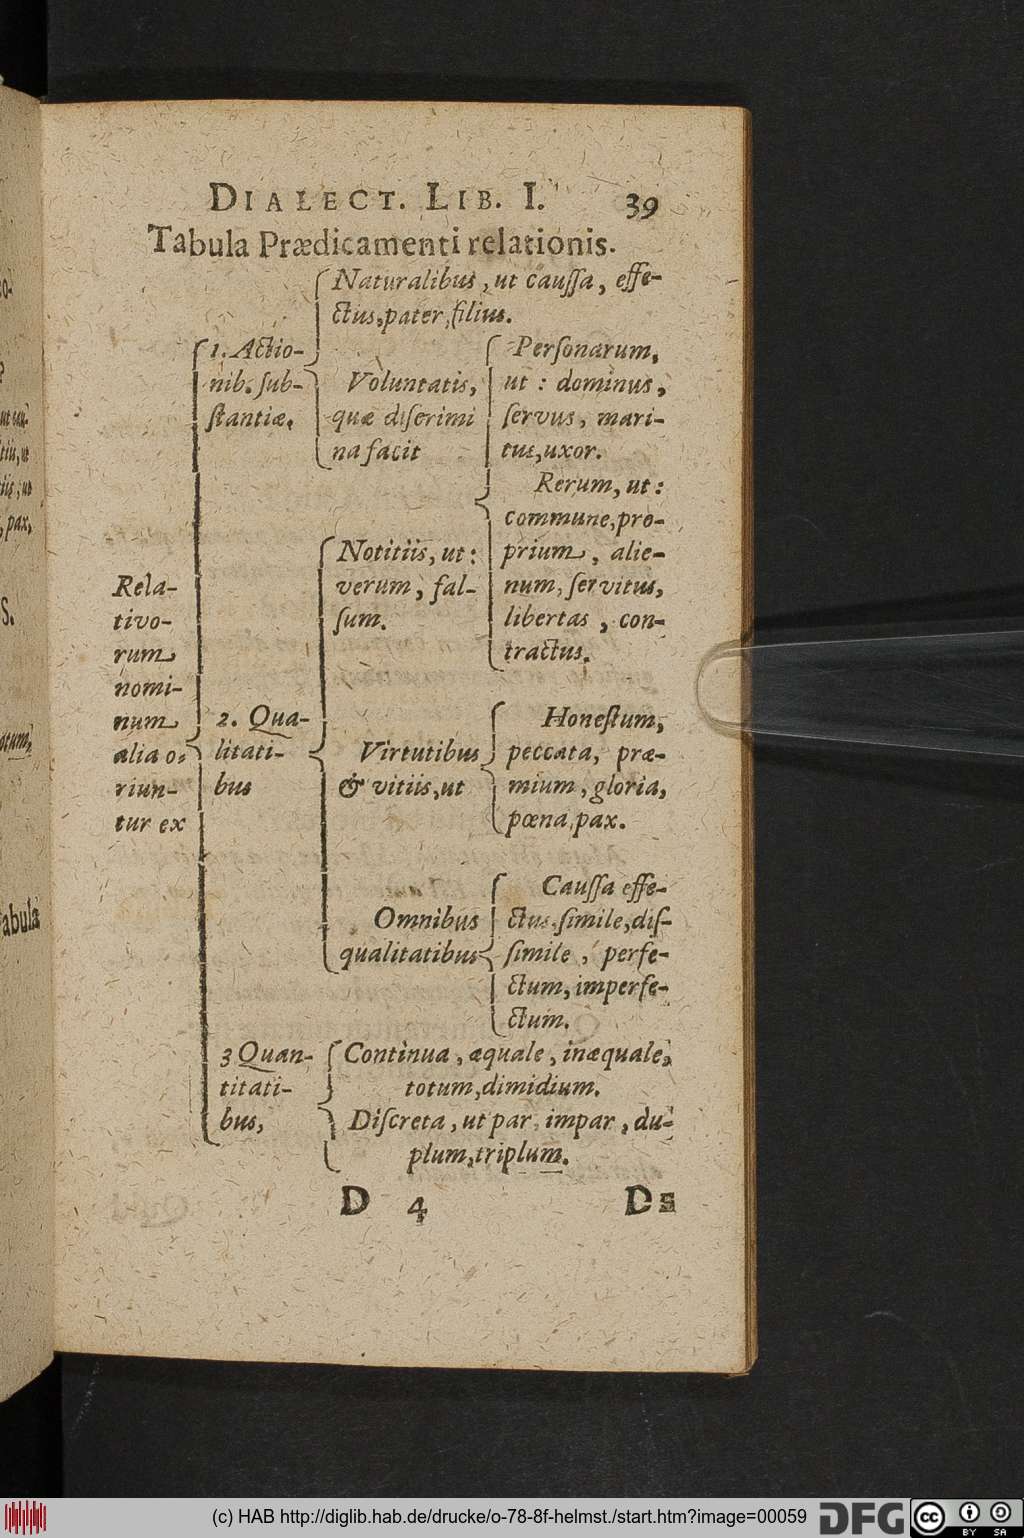 DIALECT. LIB. I. 39
Tabula Prædicamenti relationis.
Rela-
tivo-
rum
nomi-
num
alia o-
riun-
tur ex
1. Actio-
nib. ſub-
ſtantiæ.
Naturalibus, ut cauſſa, effe-
ctus, pater, filius.
Voluntatis,
quæ diſcrimi
na facit
Perſonarum,
ut: dominus,
ſervus, mari-
tus, uxor.
Rerum, ut:
commune, pro-
prium, alie-
num, ſervitus,
libertas, con-
tractus.
2. Qua-
litati-
bus
Notitiis, ut:
verum, fal-
ſum.
Virtutibus
& vitiis, ut
Honeſtum,
peccata, præ-
mium, gloria,
pœna, pax.
Omnibus
qualitatibus
Cauſſa effe-
ctus, ſimile, diſ-
ſimile, perfe-
ctum, imperfe-
ctum.
3 Quan-
titati-
bus,
Continua, æquale, inæquale,
totum, dimidium.
Diſcreta, ut par, impar, du-
plum, triplum.
D 4 De
ut cau-
pax,
S.
tabula
(c) HAB http://diglib.hab.de/drucke/o-78-8f-helmst./start.htm?image=00059
DFG
cc
BY SA